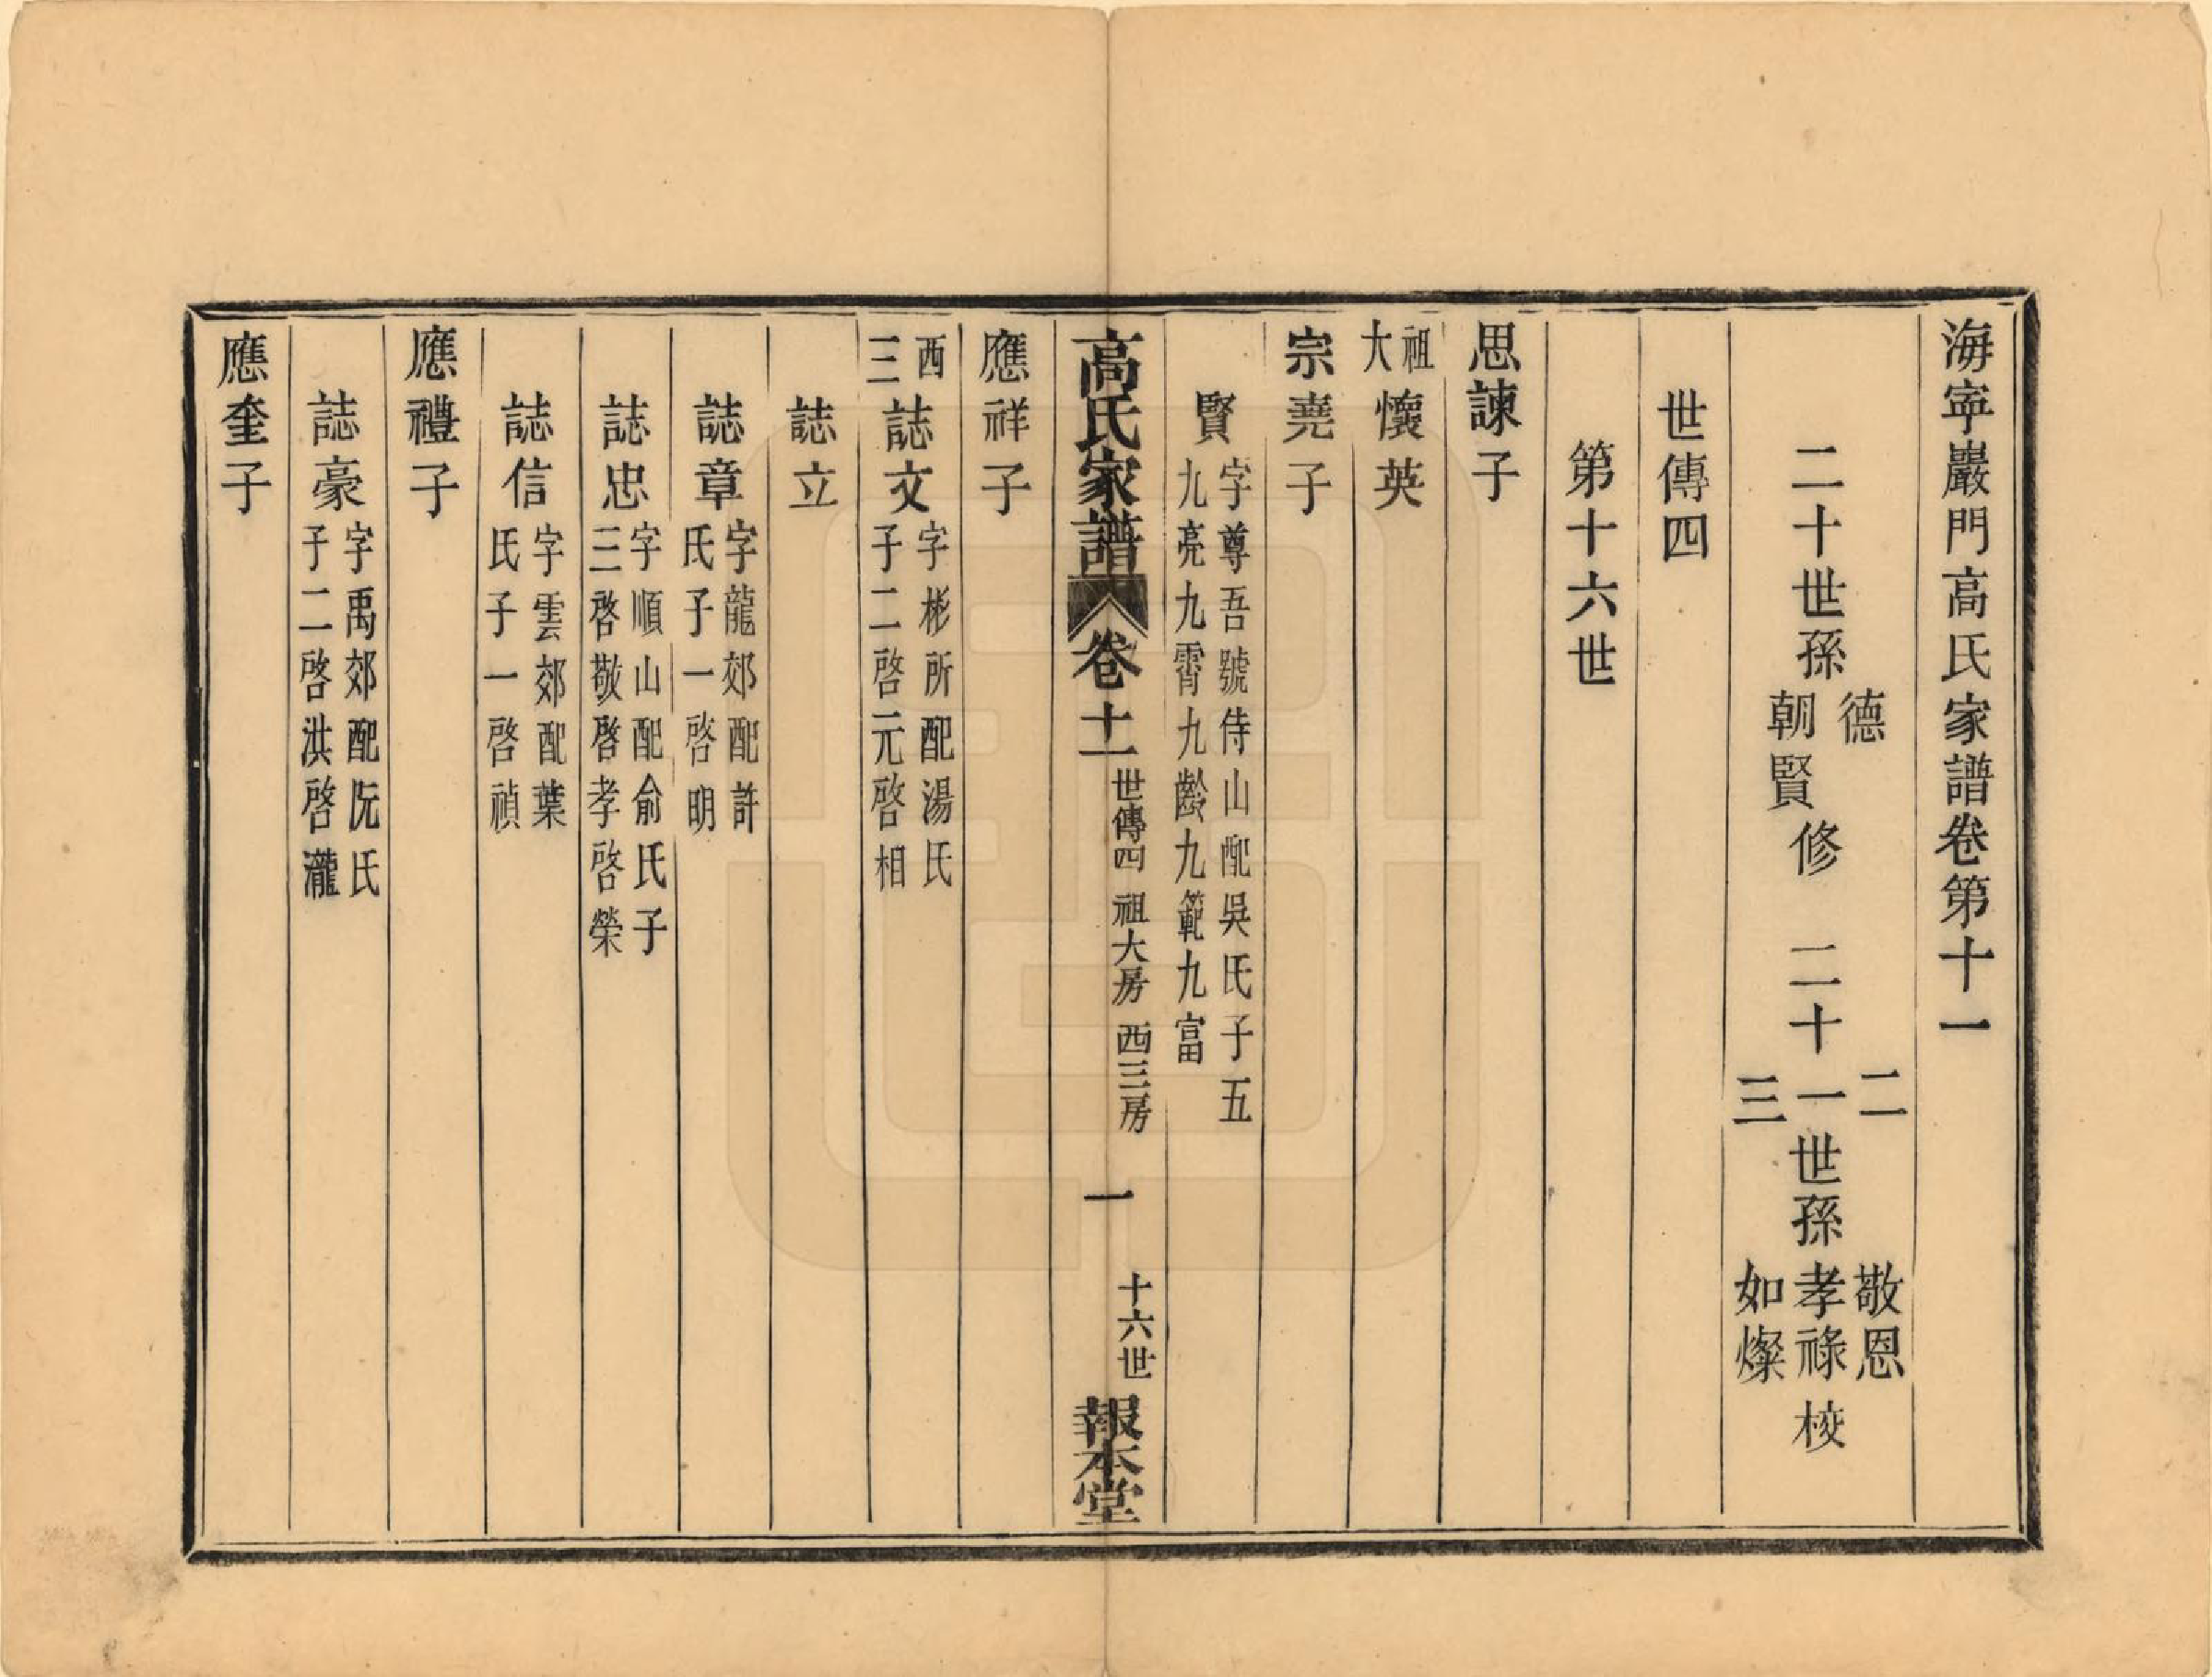 海寧巖門高氏家譜卷第十一
二十世孫德朝賢修 二十一二三世孫敬恩孝祿如燦校
世傳四
第十六世
思諫子
祖大懷英
宗堯子
賢字尊吾號侍山配吳氏子五九亮九霄九齡九範九富
高氏家譜 卷十一 世傳四 祖大房 西三房 一 十六世 報本堂
應祥子
西三誌文字彬所配湯氏子二啓元啓相
誌立
誌章字龍郊配許氏子一啓明
誌忠字順山配俞氏子三啓敬啓孝啓榮
誌信字雲郊配葉氏子一啓禎
應禮子
誌豪字禹郊配阮氏子二啓洪啓瀧
應奎子